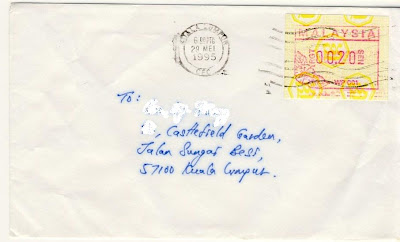 KUALA LUMPUR
29 MEI
1995
MALAYSIA
0020
WP 001
To:
Castlefield Garden,
Jalan Sungai Besi,
57100 Kuala Lumpur.